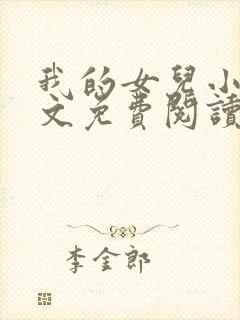 我的女兒小
文免費閱讀
李金郎